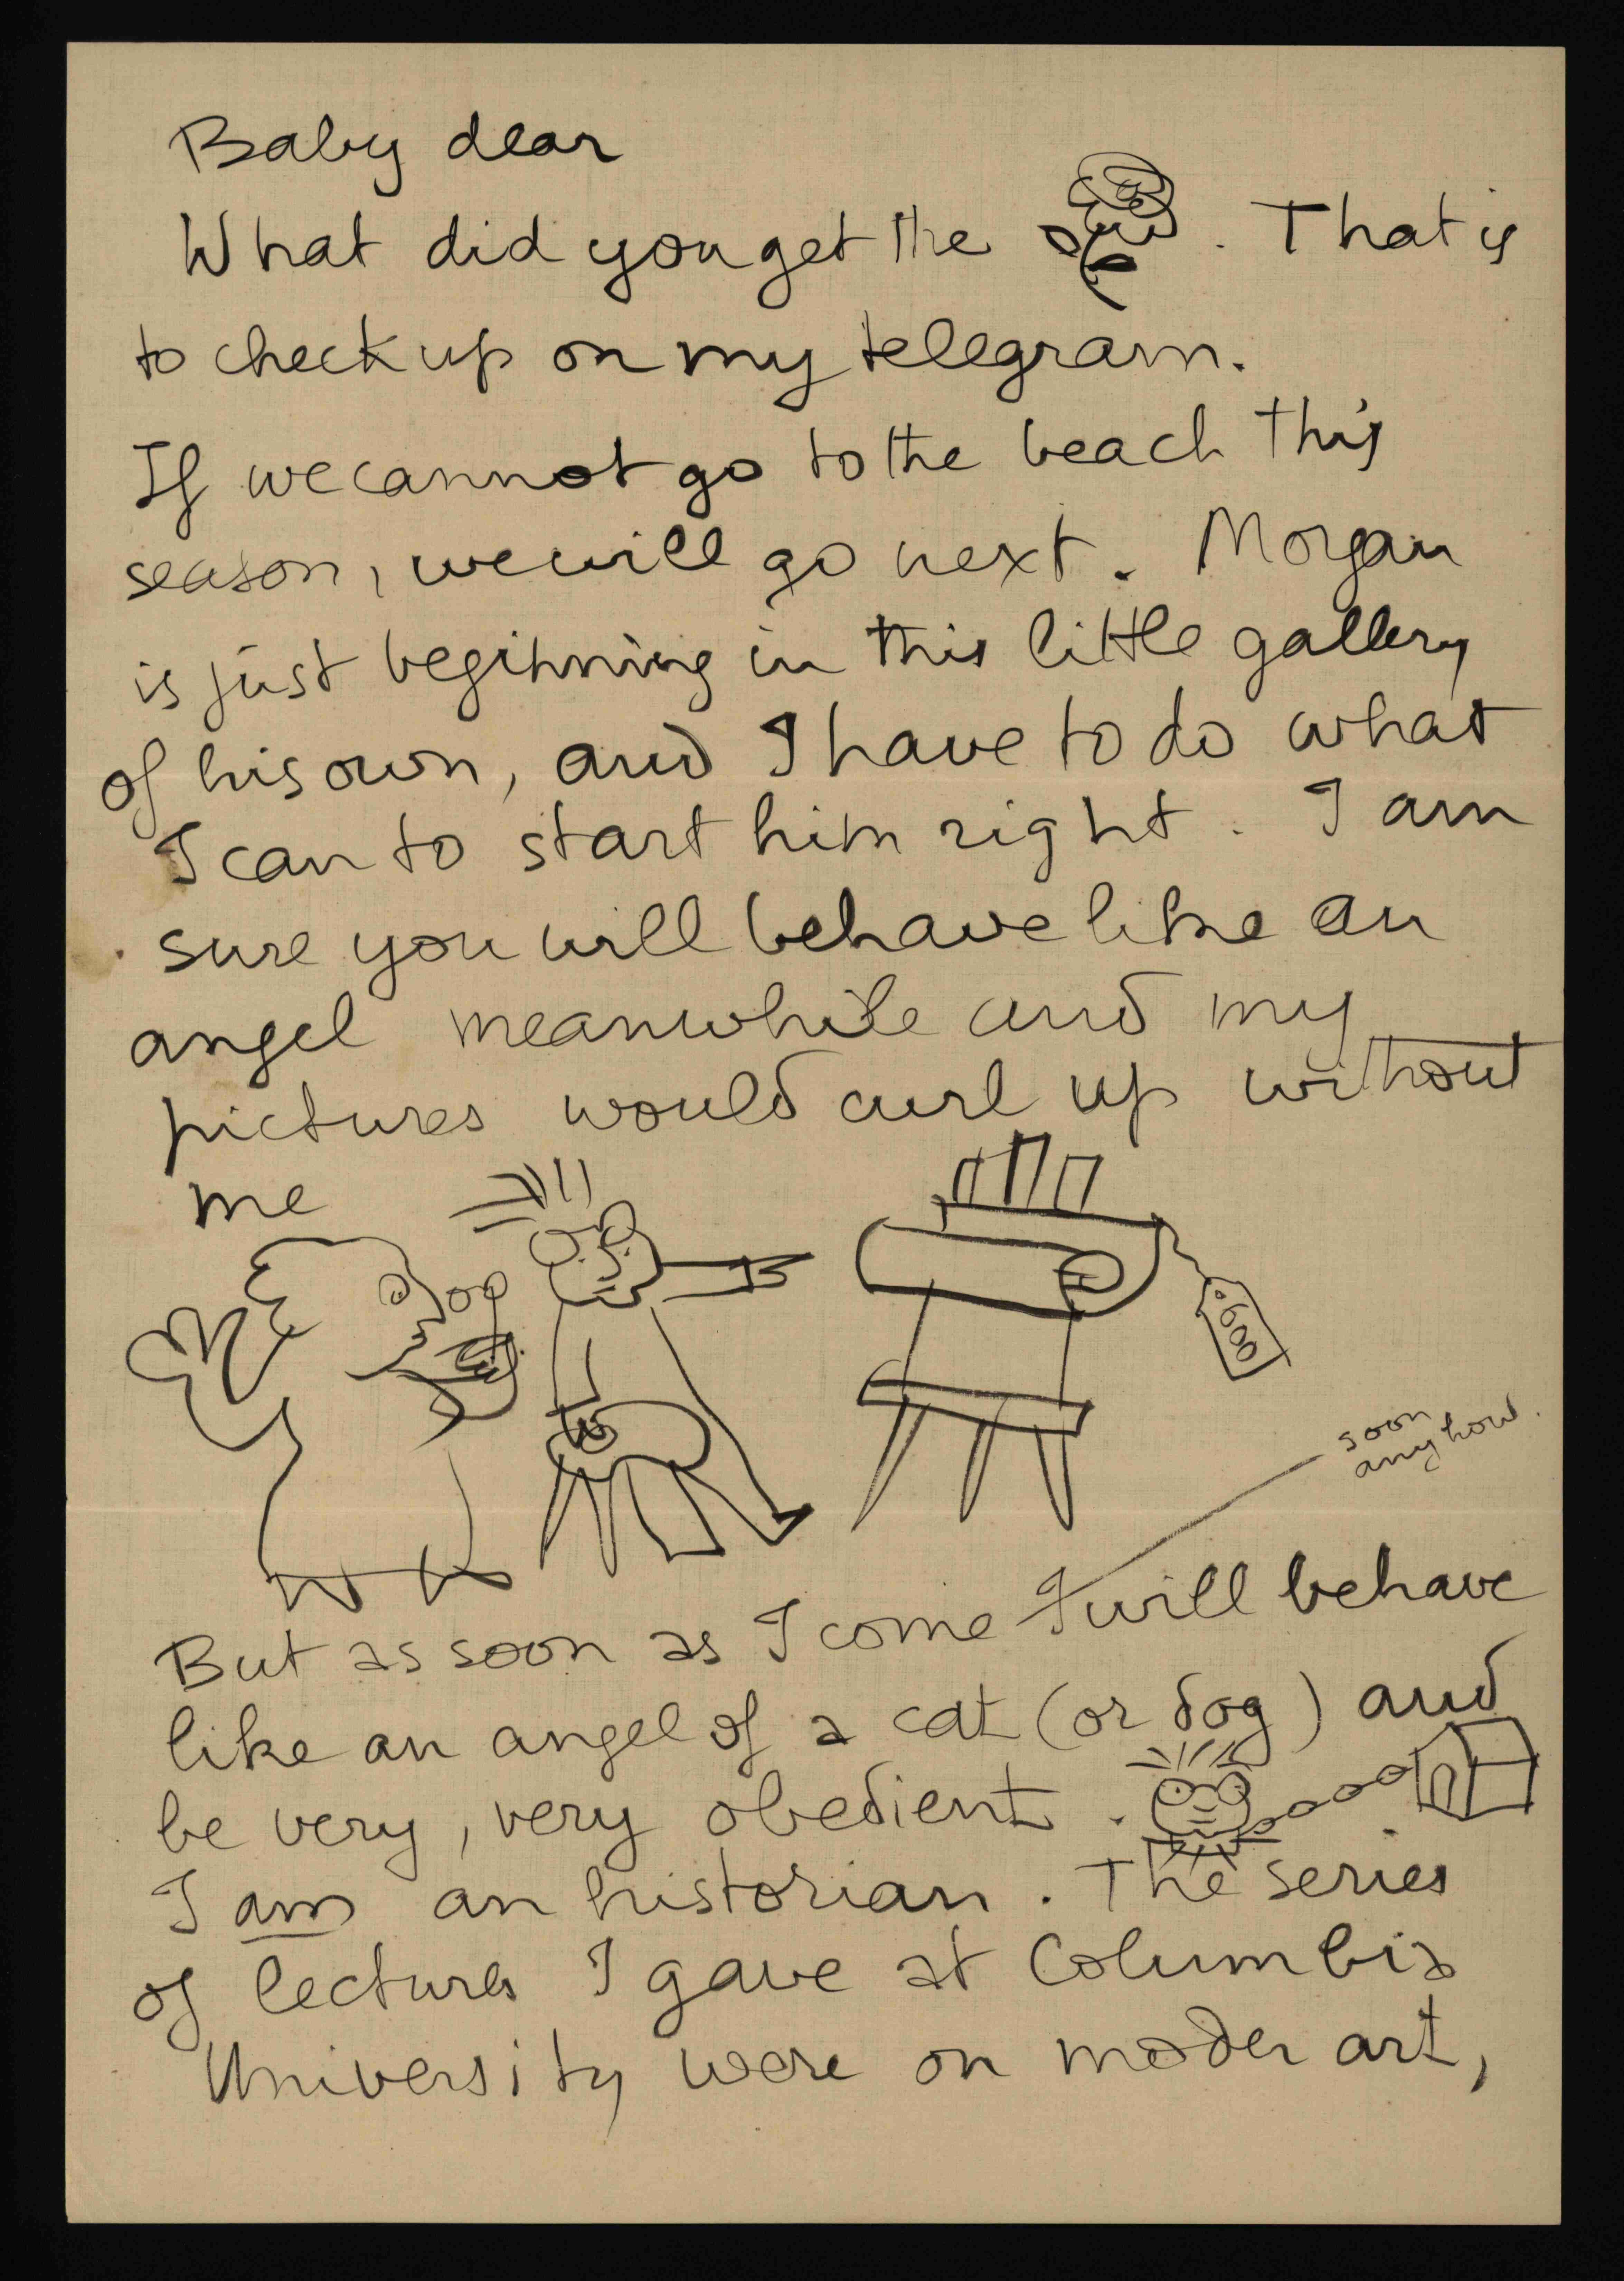 Baby dear
What did you get the . That is
to check up on my telegram.
If we cannot go to the beach this
season, we will go next. Morgan
is just beginning in this little gallery
of his own, and I have to do what
I can to start him right. I am
sure you will behave like an
angel meanwhile and my
pictures would curl up without
me
600
soon
anyhow.
But as soon as I come I will behave
like an angel of a cat (or dog) and
be very, very obedient.
I am an historian. The series
of lectures I gave at Columbia
University were on moder art,